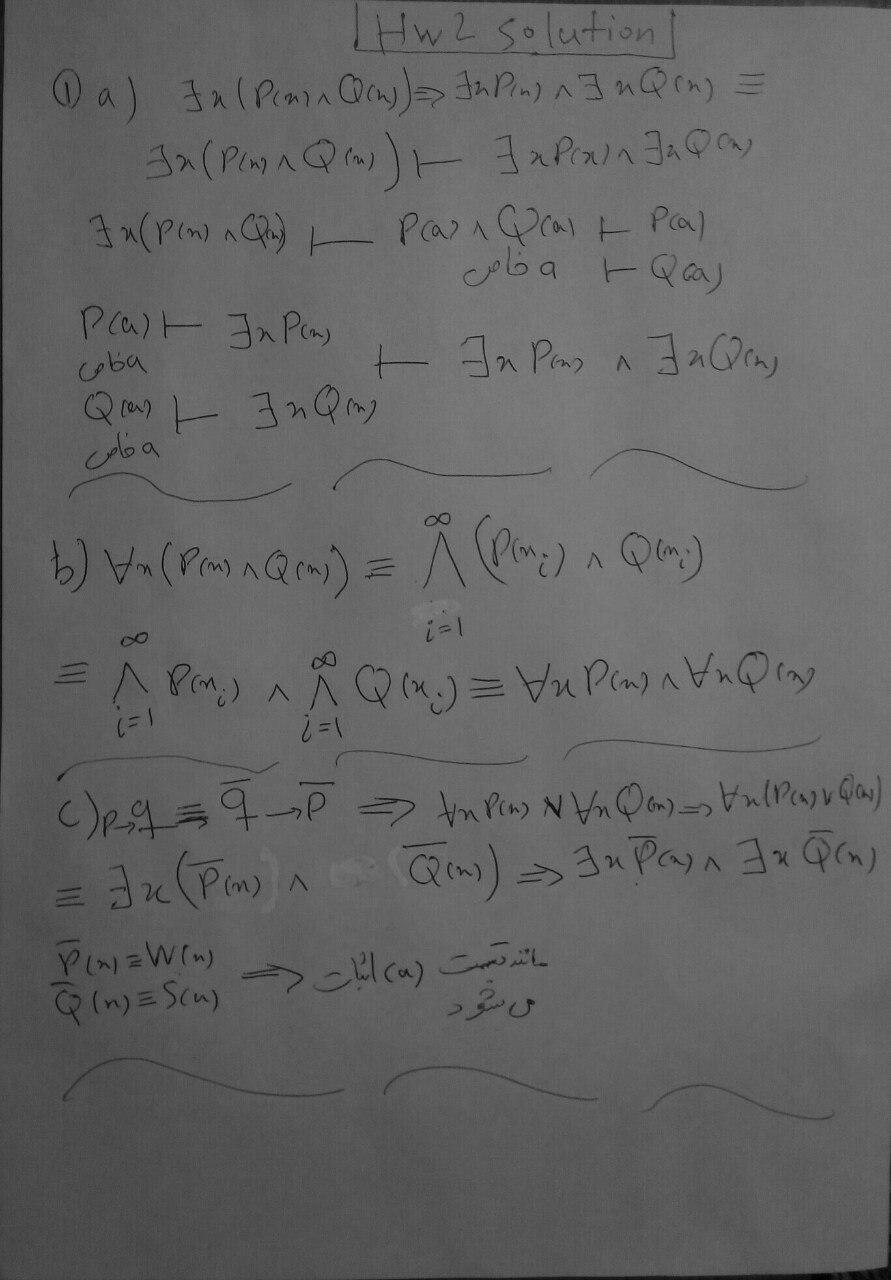 Hw2 solution
① a) ∃x(P(x)∧Q(x))⇒∃xP(x)∧∃xQ(x) ≡
∃x(P(x)∧Q(x)) ⊢ ∃xP(x)∧∃xQ(x)
∃x(P(x)∧Q(x)) ⊢ P(a)∧Q(a) ⊢ P(a)
a خاص ⊢ Q(a)
P(a) ⊢ ∃xP(x)
a خاص
⊢ ∃xP(x) ∧ ∃xQ(x)
Q(a) ⊢ ∃xQ(x)
a خاص
b) ∀x(P(x)∧Q(x)) ≡ ⋀_{i=1}^{∞} (P(x_i) ∧ Q(x_i)
≡ ⋀_{i=1}^{∞} P(x_i) ∧ ⋀_{i=1}^{∞} Q(x_i) ≡ ∀xP(x)∧∀xQ(x)
c) p→q ≡ q̅→p̅ ⇒ ∀xP(x) ∨ ∀xQ(x) ⇒ ∀x(P(x)∨Q(x))
≡ ∃x(P̅(x) ∧ Q̅(x)) ⇒ ∃xP̅(x) ∧ ∃xQ̅(x)
P̅(x) ≡ W(x)
Q̅(x) ≡ S(x)
⇒ مانند قسمت (a) اثبات
می شود